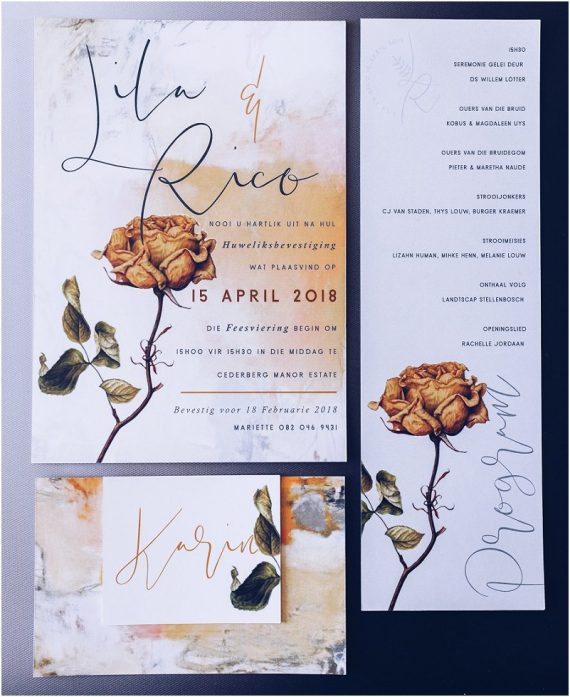 Lila
&
Rico
NOOI U HARTLIK UIT NA HUL
Huweliksbevestiging
WAT PLAASVIND OP
15 APRIL 2018
DIE Feesviering BEGIN OM
15H00 VIR 15H30 IN DIE MIDDAG TE
CEDERBERG MANOR ESTATE
Bevestig voor 18 Februarie 2018
MARIETTE 082 046 9431
Karin
15H30
SEREMONIE GELEI DEUR
DS WILLEM LOTTER
OUERS VAN DIE BRUID
KOBUS & MAGDALEEN UYS
OUERS VAN DIE BRUIDEGOM
PIETER & MARETHA NAUDE
STROOIJONKERS
CJ VAN STADEN, THYS LOUW, BURGER KRAEMER
STROOIMEISIES
LIZAHN HUMAN, MIHKE HENN, MELANIE LOUW
ONTHAAL VOLG
LANDTSCAP STELLENBOSCH
OPENINGSLIED
RACHELLE JORDAAN
Program